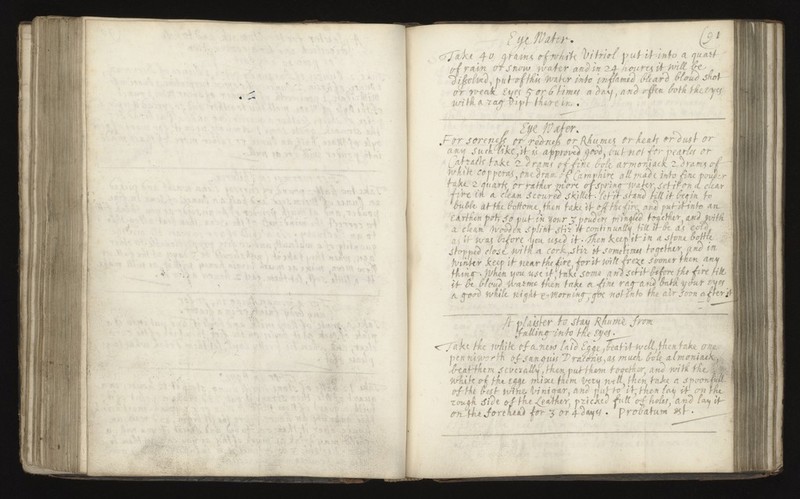 (91
Eye Water.
Take 40 grams of white Vitriol put it into a quart
of rain or snow water and in 24 houres it will be
dissolved, put of this water into inflamed bleard bloud shot
or weak Eyes 5 or 6 times a day, and often bath the eyes
with a rag dipt therein.
Eye Water.
For soreness or redness or Rhumes or heate or dust or
any such like, it is approved good, but not for pearles or
take 2 drams of fine bole armoniack 2 drams of
white Copperas, one dram of Camphire all made into fine pouder
take 2 quarts or rather more of spring water, set it on a clear
fire in a clean scoured skillet. let it stand till it begin to
buble at the bottome, then take it off the fire, and put it into an
earthen pot, so put in your 3 pouders mingled together, and with
a clean wooden splint stir it continually till it be as cold
as it was before you used it. Then keep it in a stone bottle
stopped close with a cork, stir it sometimes together, and in
winter keep it near the fire, for it will freeze sooner then any
thing. When you use it, take some and set it before the fire till
it be bloud warme then take a fine rag and bath your eyes
a good while night & morning, goe not into the air soon after it
A plaister to stay Rhume from
falling into the eyes.
Take the white of a new laid Egge, beat it well, then take one
penniworth of sanguis Draconis, as much bole almoniack,
beat them severally, then put them together, and with the
white of the egge mixe them very well, then take a spoonfull
of the best wine vinigar, and put to it, then lay it on the
rough side of the Leather, pricked full of holes, and lay it
on the forehead for 3 or 4 dayes. Probatum est.